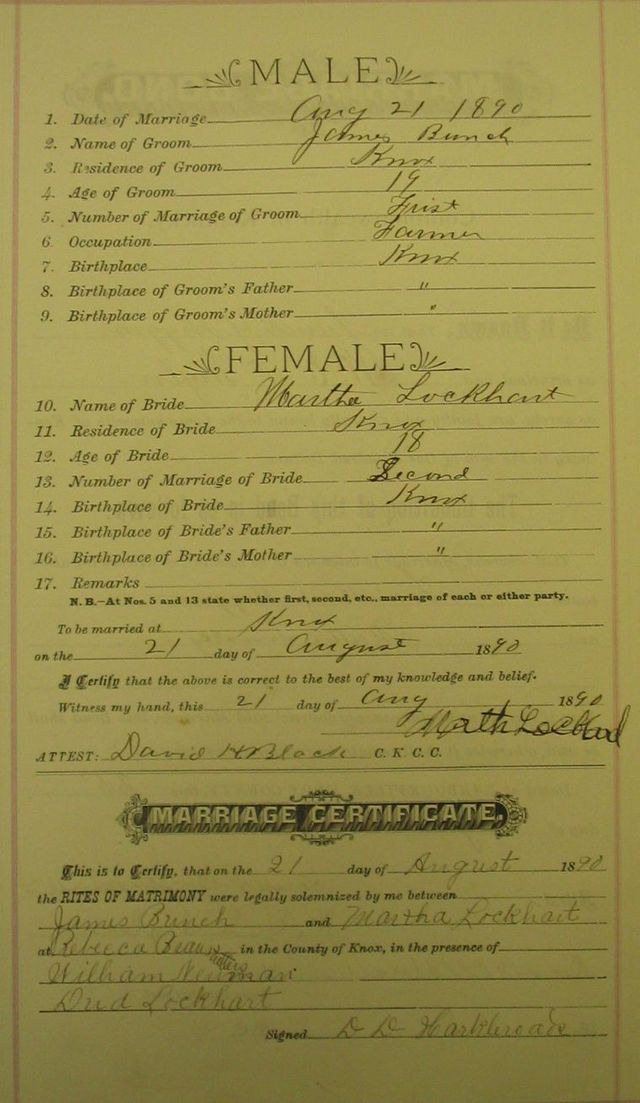 MALE
1. Date of Marriage Aug 21 1890
2. Name of Groom James Bunch
3. Residence of Groom Knox
4. Age of Groom 19
5. Number of Marriage of Groom Frist
6. Occupation Farmer
7. Birthplace Knox
8. Birthplace of Groom's Father "
9. Birthplace of Groom's Mother "
FEMALE
10. Name of Bride Martha Lockhart
11. Residence of Bride Knox
12. Age of Bride 18
13. Number of Marriage of Bride Second
14. Birthplace of Bride Knox
15. Birthplace of Bride's Father "
16. Birthplace of Bride's Mother "
17. Remarks
N. B.—At Nos. 5 and 13 state whether first, second, etc., marriage of each or either party.
To be married at Knox
on the 21 day of August 1890
I Certify that the above is correct to the best of my knowledge and belief.
Witness my hand, this 21 day of Aug 1890
ATTEST: David H Black C. K. C. C.
MARRIAGE CERTIFICATE.
This is to Certify, that on the 21 day of August 1890
the RITES OF MATRIMONY were legally solemnized by me between
James Bunch and Martha Lockhart
at Rebecca in the County of Knox, in the presence of
William Newman
Lockhart
Signed D D